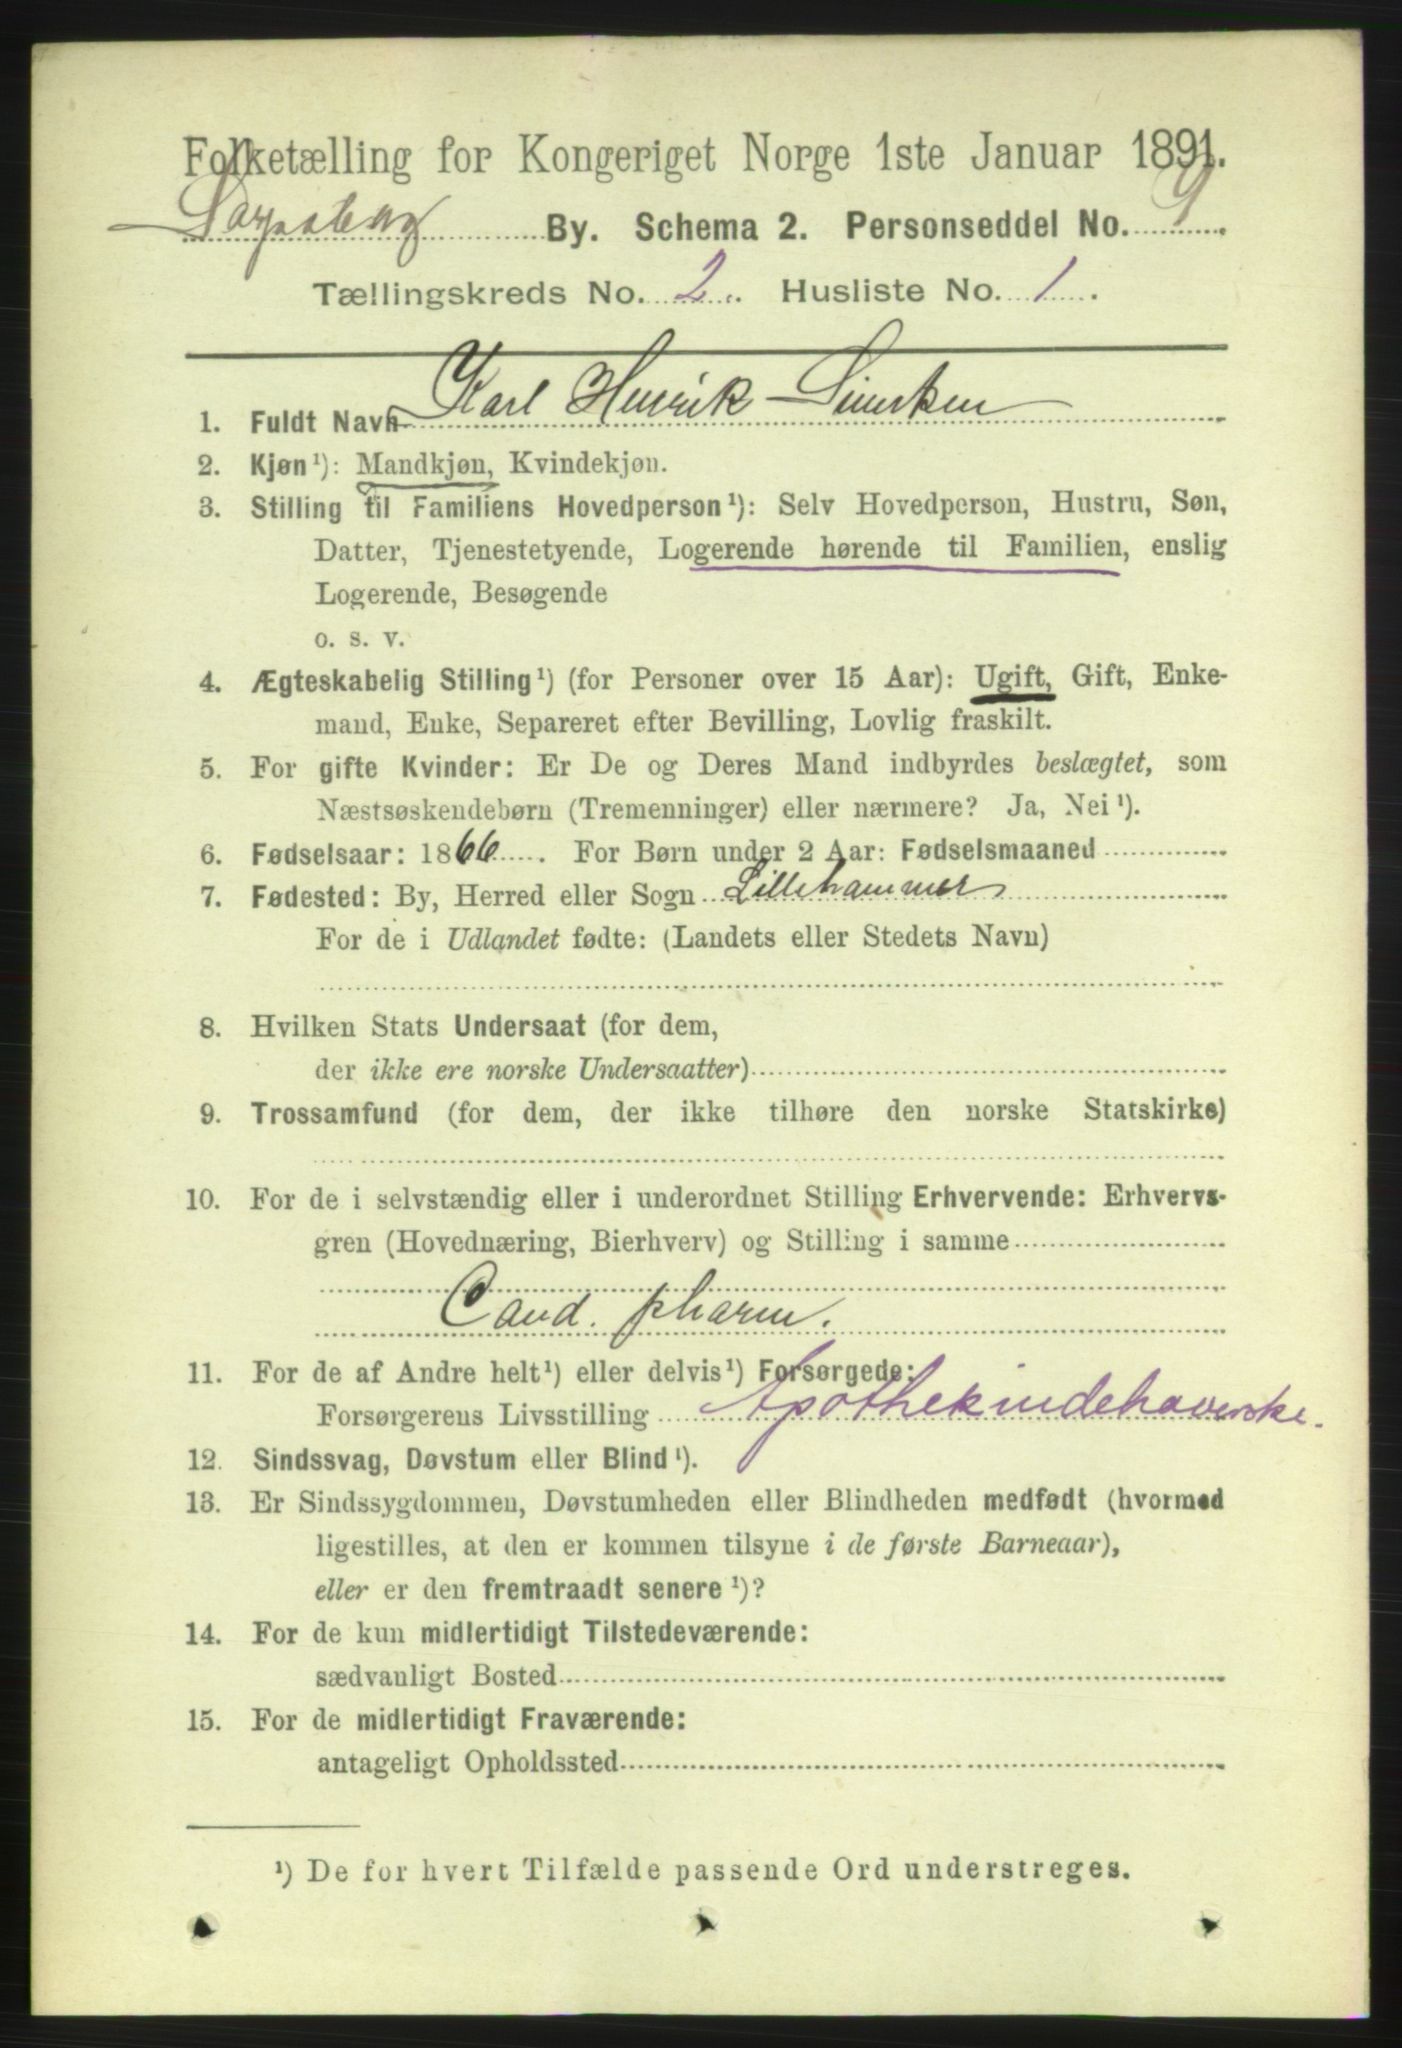 Folketælling for Kongeriget Norge 1ste Januar 1891.
Sarpsborg By. Schema 2. Personseddel No. 9.
Tællingskreds No. 2. Husliste No. 1.
1. Fuldt Navn Karl Henrik
2. Kjøn¹): Mandkjøn, Kvindekjøn.
3. Stilling til Familiens Hovedperson¹): Selv Hovedperson, Hustru, Søn,
Datter, Tjenestetyende, Logerende hørende til Familien, enslig
Logerende, Besøgende
o. s. v.
4. Ægteskabelig Stilling¹) (for Personer over 15 Aar): Ugift, Gift, Enke-
mand, Enke, Separeret efter Bevilling, Lovlig fraskilt.
5. For gifte Kvinder: Er De og Deres Mand indbyrdes beslægtet, som
Næstsøskendebørn (Tremenninger) eller nærmere? Ja, Nei¹).
6. Fødselsaar: 1866. For Børn under 2 Aar: Fødselsmaaned
7. Fødested: By, Herred eller Sogn Lillehammer
For de i Udlandet fødte: (Landets eller Stedets Navn)
8. Hvilken Stats Undersaat (for dem,
der ikke ere norske Undersaatter)
9. Trossamfund (for dem, der ikke tilhøre den norske Statskirke)
10. For de i selvstændig eller i underordnet Stilling Erhvervende: Erhvervs-
gren (Hovednæring, Bierhverv) og Stilling i samme
Cand. pharm.
11. For de af Andre helt¹) eller delvis¹) Forsørgede:
Forsørgerens Livsstilling Apothekindehaverske.
12. Sindssvag, Døvstum eller Blind¹).
13. Er Sindssygdommen, Døvstumheden eller Blindheden medfødt (hvormed
ligestilles, at den er kommen tilsyne i de første Barneaar),
eller er den fremtraadt senere¹)?
14. For de kun midlertidigt Tilstedeværende:
sædvanligt Bosted
15. For de midlertidigt Fraværende:
antageligt Opholdssted
¹) De for hvert Tilfælde passende Ord understreges.